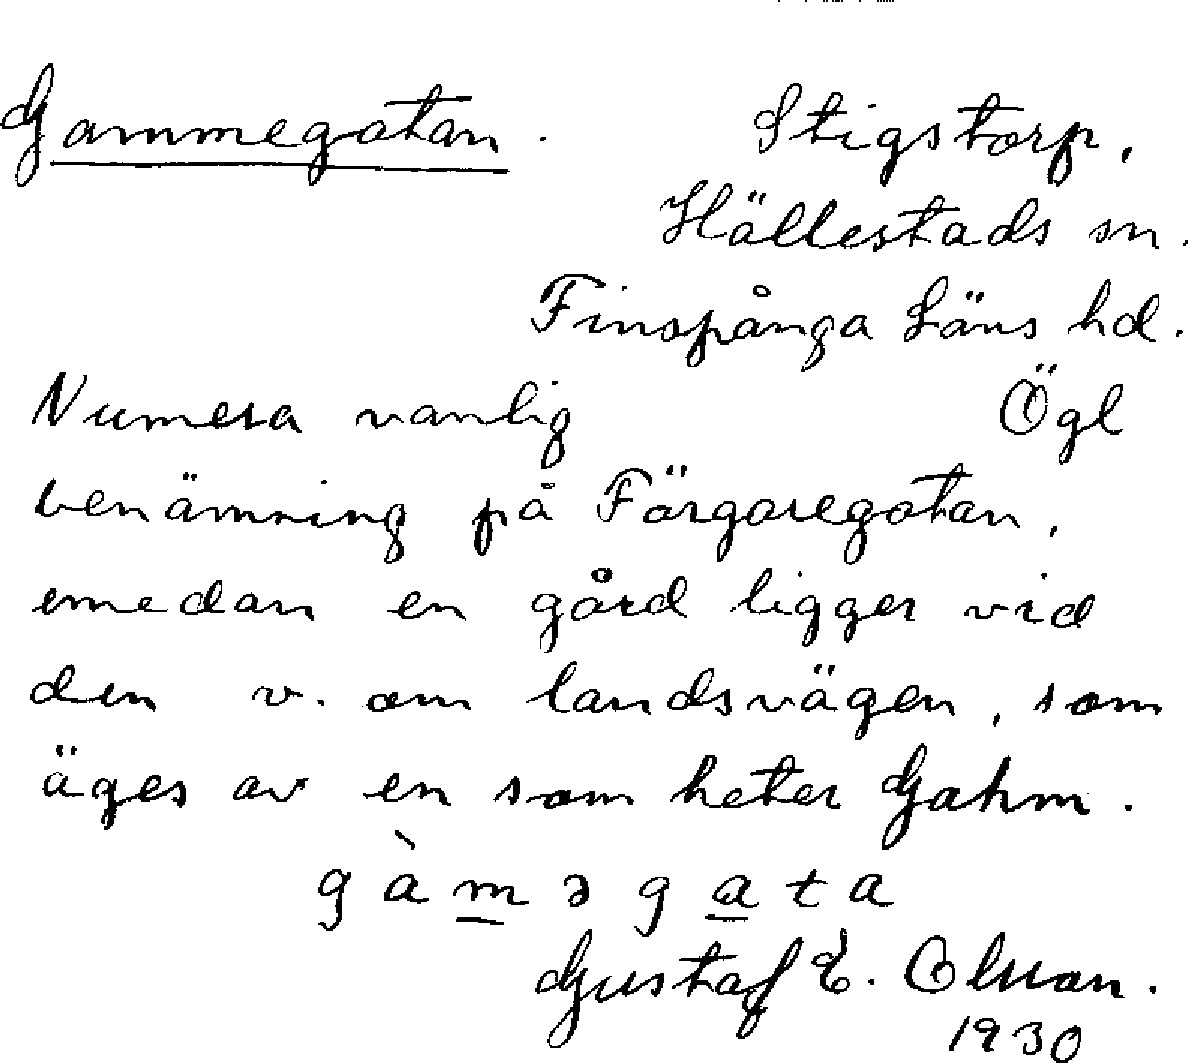 Gammegatan. Stigstorp,
Hällestads sn.
Finspånga Läns hd.
Numera vanlig Ögl
benämning på Färgaregatan,
emedan en gård ligger vid
den v. om landsvägen, som
äges av en som heter Gahm.
gàməgata
Gustaf E. Olsson.
1930